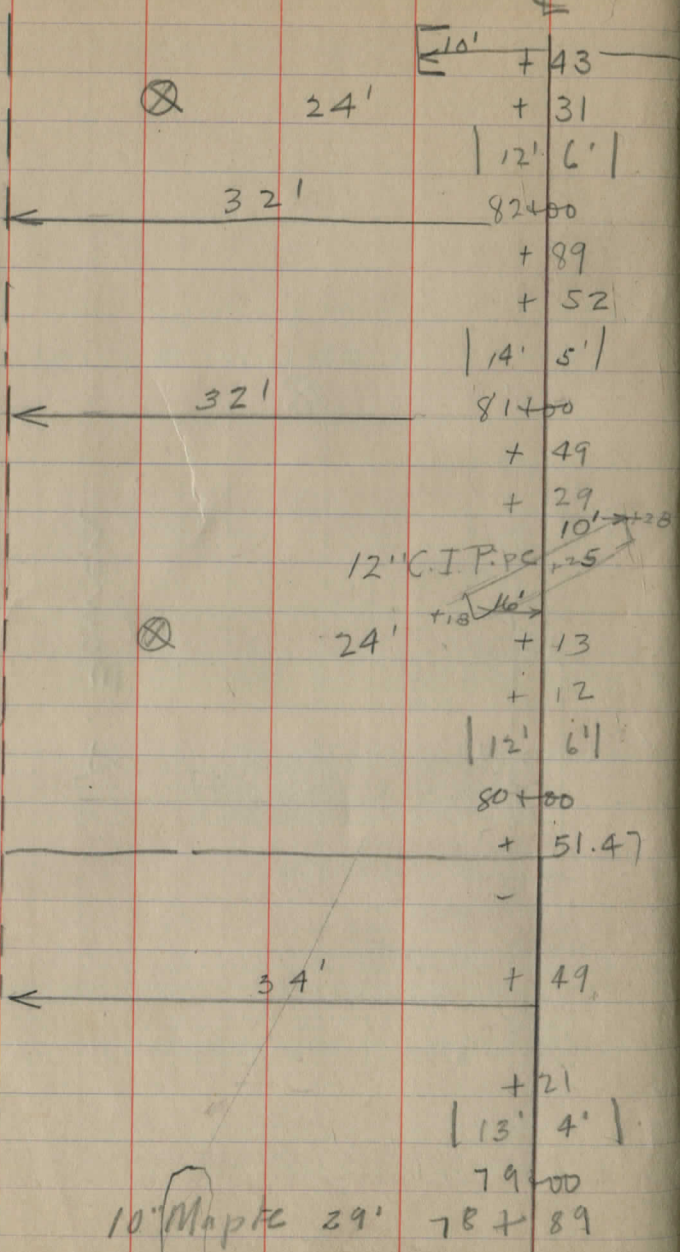 10' + 43
24' + 31
12' 6'
32' 82+00
+ 89
+ 52
14' 5'
32' 81+00
+ 49
+ 29
10' +28
12" C.I. Pipe +25
+18 16'
24' + 13
+ 12
12' 6'
80+00
+ 51.47
-
34' + 49
+ 21
13' 4'
79+00
10" Maple 29' 78+89